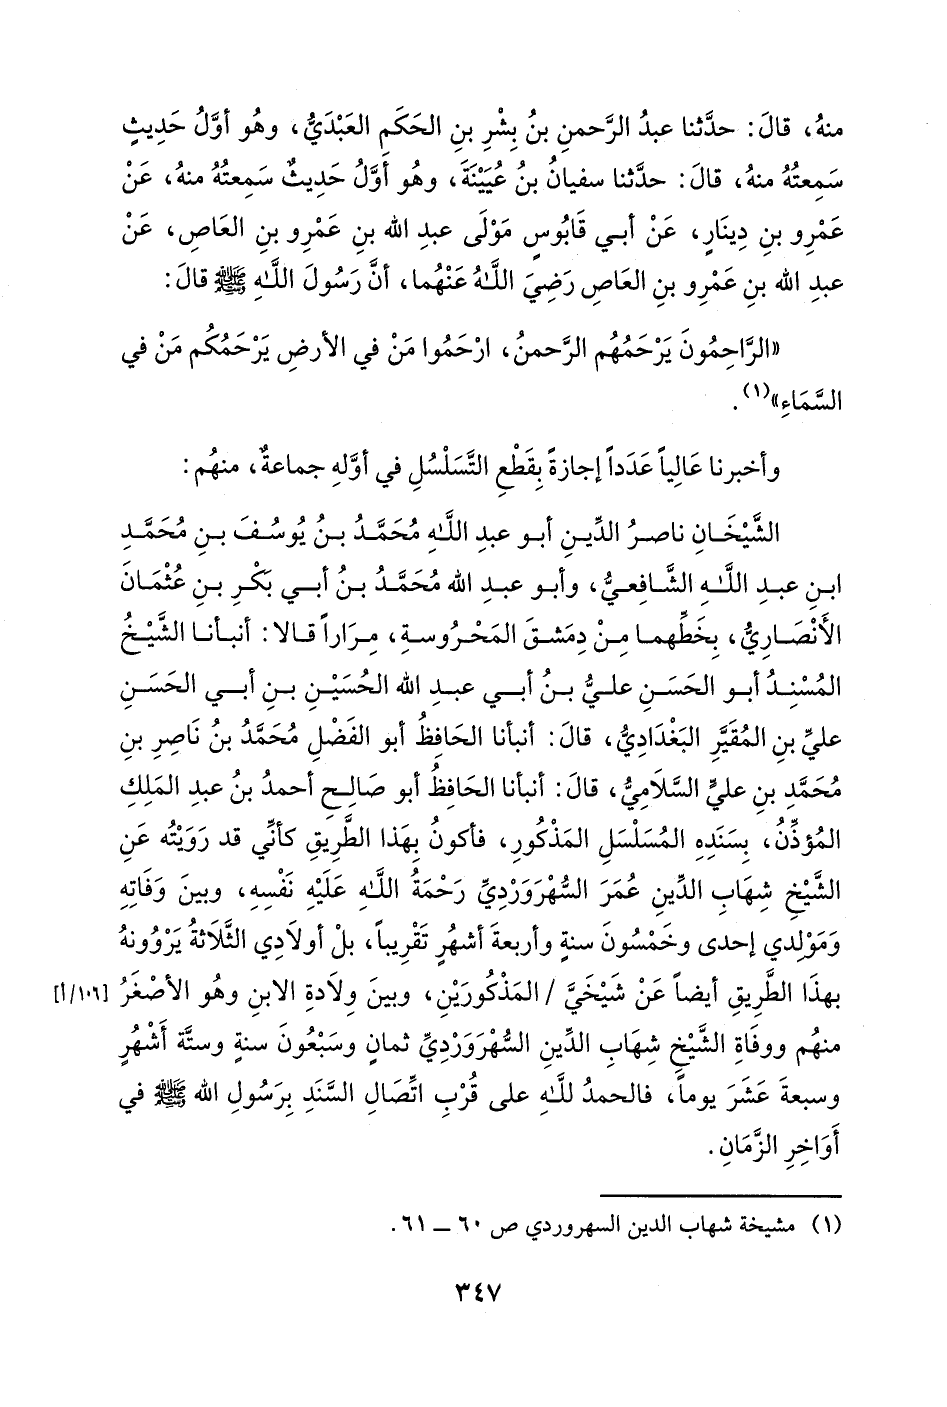 منهُ، قالَ: حدَّثنا عبدُ الرَّحمنِ بنُ بِشْرِ بنِ الحَكَمِ العَبْدَيُّ، وهُو أوَّلُ حَدِيثٍ
سَمِعتُهُ منهُ، قالَ: حدَّثنا سفيانُ بنُ عُيَيْنَةَ، وهُو أَوَّلُ حَدِيثٌ سَمِعتُهُ منهُ، عَنْ
عَمْرِو بنِ دِينَارٍ، عَنْ أبي قَابُوسٍ مَوْلَى عبدِ الله بنِ عَمْرِو بنِ العَاصِ، عَنْ
عبدِ الله بنِ عَمْرِو بنِ العَاصِ رَضِيَ اللَّـهُ عَنْهُما، أنَّ رَسُولَ اللَّـهِ ﷺ قالَ:
«الرَّاحِمُونَ يَرْحَمُهُم الرَّحمنُ، ارْحَمُوا مَنْ في الأرضِ يَرْحَمُكُم مَنْ في
السَّمَاءِ»(١).
وأخبرنا عَالِياً عَدَداً إجازةً بِقَطْعِ التَّسَلْسُلِ في أوَّلهِ جماعةٌ، منهُم:
الشَّيْخَـانِ ناصـرُ الدِّيـنِ أبـو عبدِ اللَّـهِ مُحَمَّدُ بـنُ يُوسُـفَ بـنِ مُحَمَّـدِ
ابـنِ عبـدِ اللَّـهِ الشَّـافعِـيُّ، وأبـو عبـدِ الله مُحَمَّدُ بـنُ أبـي بَكْـرِ بـنِ عُثْمَـانَ
الأَنْصَـارِيُّ، بِخَطِّهمـا مِـنْ دِمَشـقَ المَحْـرُوسـةِ، مِـرَاراً قـالا: أنبـأنـا الشَّيْـخُ
المُسْنِـدُ أبـو الحَسَـنِ علـيُّ بـنُ أبـي عبـدِ الله الحُسَيْـنِ بـنِ أبـي الحَسَـنِ
عليِّ بنِ المُقَيَّرِ البَغْدَادِيُّ، قالَ: أنبأنا الحَافِظُ أبو الفَضْلِ مُحَمَّدُ بنُ نَاصِرِ بنِ
مُحَمَّدِ بنِ عليٍّ السَّلَامِيُّ، قالَ: أنبأنا الحَافِظُ أبو صَالِحٍ أحمدُ بنُ عبدِ المَلِكِ
المُؤذِّنُ، بِسَنَدِهِ المُسَلْسَلِ المَذْكُورِ، فأكونُ بِهَذا الطَّرِيقِ كأنِّي قد رَوَيْتُه عَنِ
الشَّيْخِ شِهَابِ الدِّينِ عُمَرَ السُّهْرَوَرْدِيِّ رَحْمَةُ اللَّـهِ عَلَيْهِ نَفْسِهِ، وبينَ وَفَاتِهِ
وَمَوْلِدِي إحدى وخَمْسُونَ سنةٍ وأربعةَ أشهُرٍ تَقْرِيباً، بلْ أولادِي الثَّلاثةُ يَرْوُونهُ
بهذَا الطَّرِيقِ أيضاً عَنْ شَيْخَيَّ / المَذْكُورَيْنِ، وبينَ وِلَادةِ الابنِ وهُو الأصْغَرُ [١٠٦/أ]
منهُم ووفَاةِ الشَّيْخِ شِهَابِ الدِّينِ السُّهْرَوَرْدِيِّ ثمانٍ وسَبْعُونَ سنةٍ وستَّة أَشْهُرٍ
وسبعةَ عَشَرَ يوماً، فالحمدُ للَّـهِ على قُرْبِ اتِّصَالِ السَّنَدِ بِرَسُولِ الله ﷺ في
أَوَاخِرِ الزَّمَانِ.
(١) مشيخة شهاب الدين السهروردي ص ٦٠ ــ ٦١.
٣٤٧